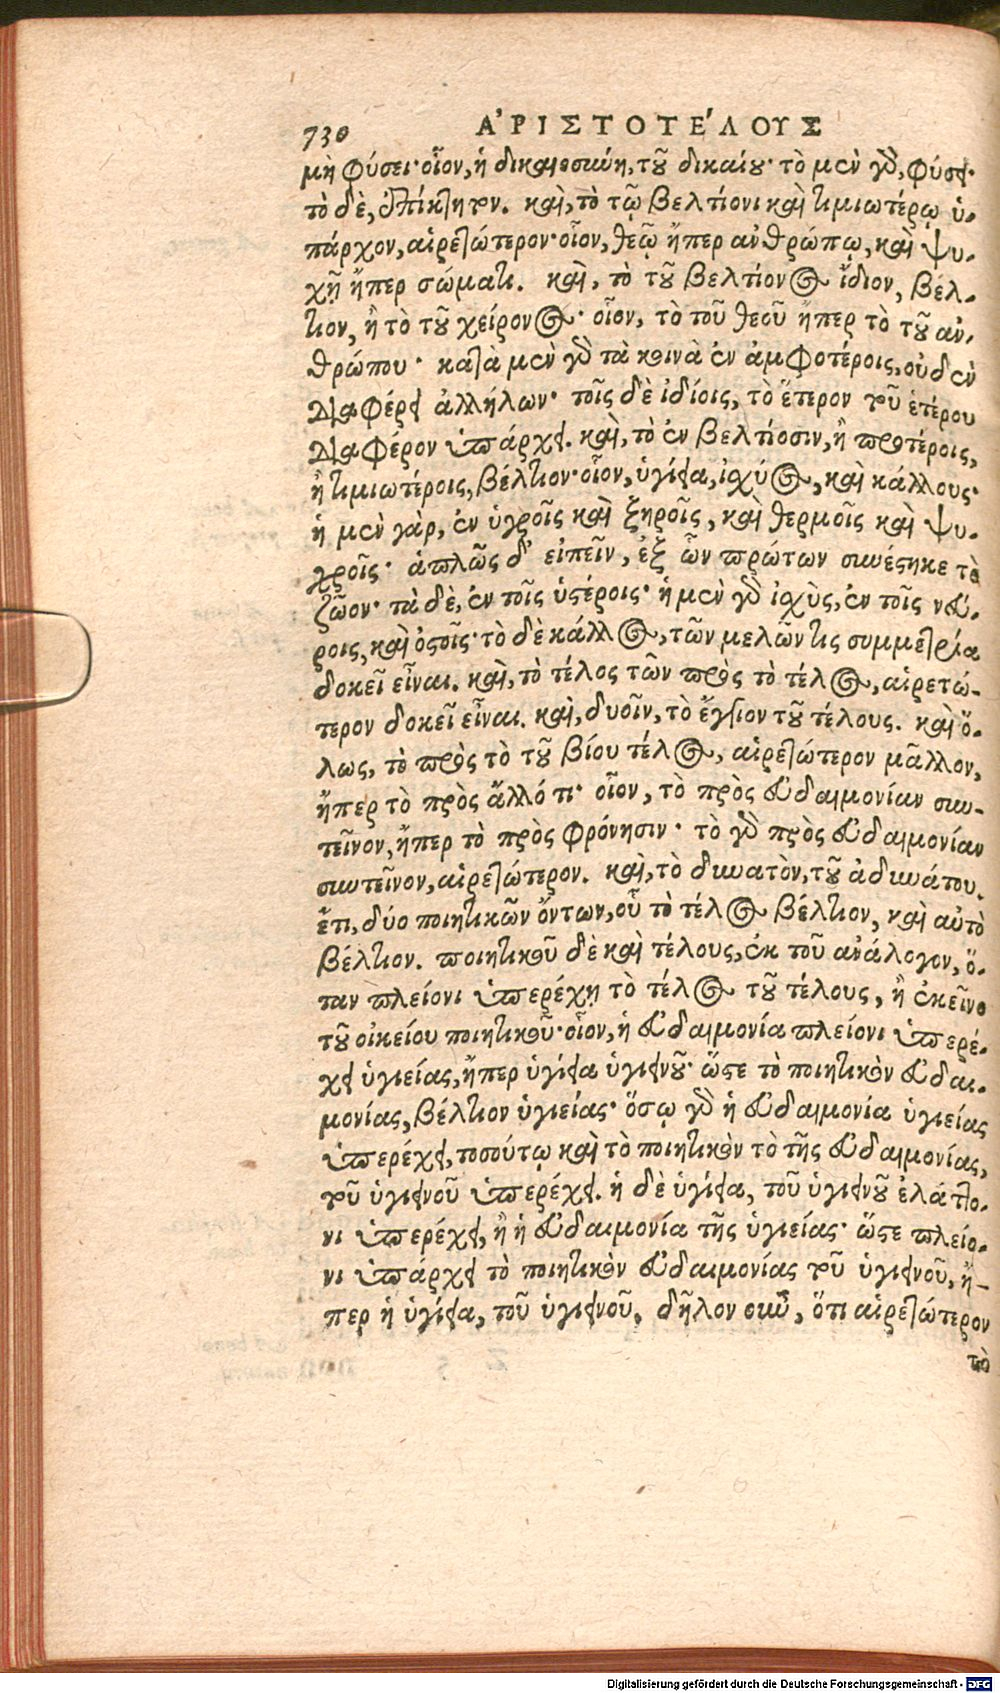 730 ἈΡΙΣΤΟΤΈΛΟΥΣ
μὴ φύσει· οἷον, ἡ δικαιοσύνη, τοῦ δικαίου· τὸ μὲν γὰρ, φύσει·
τὸ δὲ, ἐπίκτητον. καὶ, τὸ τῷ βελτίονι καὶ τιμιωτέρῳ ὑ-
πάρχον, αἱρετώτερον· οἷον, θεῷ ἤπερ ἀνθρώπῳ, καὶ ψυ-
χῇ ἤπερ σώματι. καὶ, τὸ τοῦ βελτίονος ἴδιον, βέλ-
τιον, ἢ τὸ τοῦ χείρονος· οἷον, τὸ τοῦ θεοῦ ἤπερ τὸ τοῦ ἀν-
θρώπου· κατὰ μὲν γὰρ τὰ κοινὰ ἐν ἀμφοτέροις, οὐδὲν
διαφέρει ἀλλήλων· τοῖς δὲ ἰδίοις, τὸ ἕτερον τοῦ ἑτέρου
διαφέρον ὑπάρχει. καὶ, τὸ ἐν βελτίοσιν, ἢ προτέροις,
ἢ τιμιωτέροις, βέλτιον· οἷον, ὑγίεια, ἰσχύος, καὶ κάλλους·
ἡ μὲν γὰρ, ἐν ὑγροῖς καὶ ξηροῖς, καὶ θερμοῖς καὶ ψυ-
χροῖς· ἁπλῶς δ' εἰπεῖν, ἐξ ὧν πρώτων συνέστηκε τὸ
ζῶον· τὰ δὲ, ἐν τοῖς ὑστέροις· ἡ μὲν γὰρ ἰσχὺς, ἐν τοῖς νεύ-
ροις, καὶ ὀστοῖς· τὸ δὲ κάλλος, τῶν μελῶν τις συμμετρία
δοκεῖ εἶναι. καὶ, τὸ τέλος τῶν πρὸς τὸ τέλος, αἱρετώ-
τερον δοκεῖ εἶναι. καὶ, δυοῖν, τὸ ἔγγιον τοῦ τέλους. καὶ ὅ-
λως, τὸ πρὸς τὸ τοῦ βίου τέλος, αἱρετώτερον μᾶλλον,
ἤπερ τὸ πρὸς ἄλλό τι· οἷον, τὸ πρὸς εὐδαιμονίαν συν-
τεῖνον, ἤπερ τὸ πρὸς φρόνησιν· τὸ γὰρ πρὸς εὐδαιμονίαν
συντεῖνον, αἱρετώτερον. καὶ, τὸ δυνατὸν, τοῦ ἀδυνάτου.
ἔτι, δύο ποιητικῶν ὄντων, οὗ τὸ τέλος βέλτιον, καὶ αὐτὸ
βέλτιον. ποιητικοῦ δὲ καὶ τέλους, ἐκ τοῦ ἀνάλογον, ὅ-
ταν πλείονι ὑπερέχῃ τὸ τέλος τοῦ τέλους, ἢ ἐκεῖνο
τοῦ οἰκείου ποιητικοῦ· οἷον, ἡ εὐδαιμονία πλείονι ὑπερέ-
χει ὑγιείας, ἤπερ ὑγίεια ὑγιεινοῦ· ὥστε τὸ ποιητικὸν εὐδαι-
μονίας, βέλτιον ὑγιείας· ὅσῳ γὰρ ἡ εὐδαιμονία ὑγιείας
ὑπερέχει, τοσούτῳ καὶ τὸ ποιητικὸν τὸ τῆς εὐδαιμονίας,
τοῦ ὑγιεινοῦ ὑπερέχει. ἡ δὲ ὑγίεια, τοῦ ὑγιεινοῦ ἐλάττο-
νι ὑπερέχει, ἢ ἡ εὐδαιμονία τῆς ὑγιείας· ὥστε πλείο-
νι ὑπάρχει τὸ ποιητικὸν εὐδαιμονίας τοῦ ὑγιεινοῦ, ἤ-
περ ἡ ὑγίεια, τοῦ ὑγιεινοῦ. δῆλον οὖν, ὅτι αἱρετώτερον
τὸ
Digitalisierung gefördert durch die Deutsche Forschungsgemeinschaft - DFG